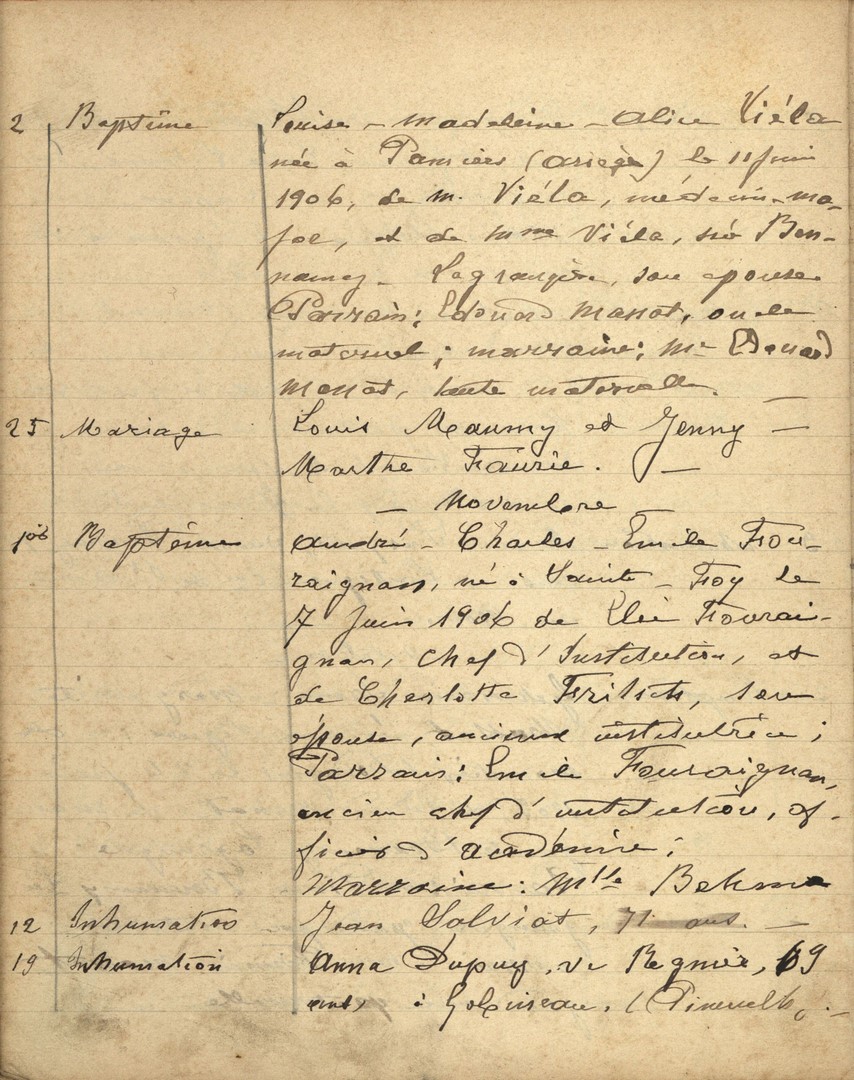 2 Baptême Louise - Madeleine - Alice Viéla
née à Pamiers (Ariège) le 11 Juin
1906, de M. Viéla, médecin-ma-
jor, et de Mme Viéla, née Bon-
namy - Lagrangère, son épouse
Parrain: Edouard Massot, oncle
maternel; marraine: Me Edouard
Massot, tante maternelle.
25 Mariage Louis Maumy et Jenny -
Marthe Faurie. -
- Novembre -
Baptême André - Charles - Emile Four-
raignan, né à Sainte - Foy le
7 Juin 1906 de Elie Fourrai-
gnan, chef d'Institution, et
de Charlotte Fritsch, son
épouse, ancienne institutrice;
Parrain: Emile Fourraignan,
ancien chef d'institution, of-
ficier d'académie;
Marraine: Mlle Behm
12 Inhumation Jean Salviat, 71 ans. -
19 Inhumation Anna Dupuy, ve Regnier, 69
ans, à